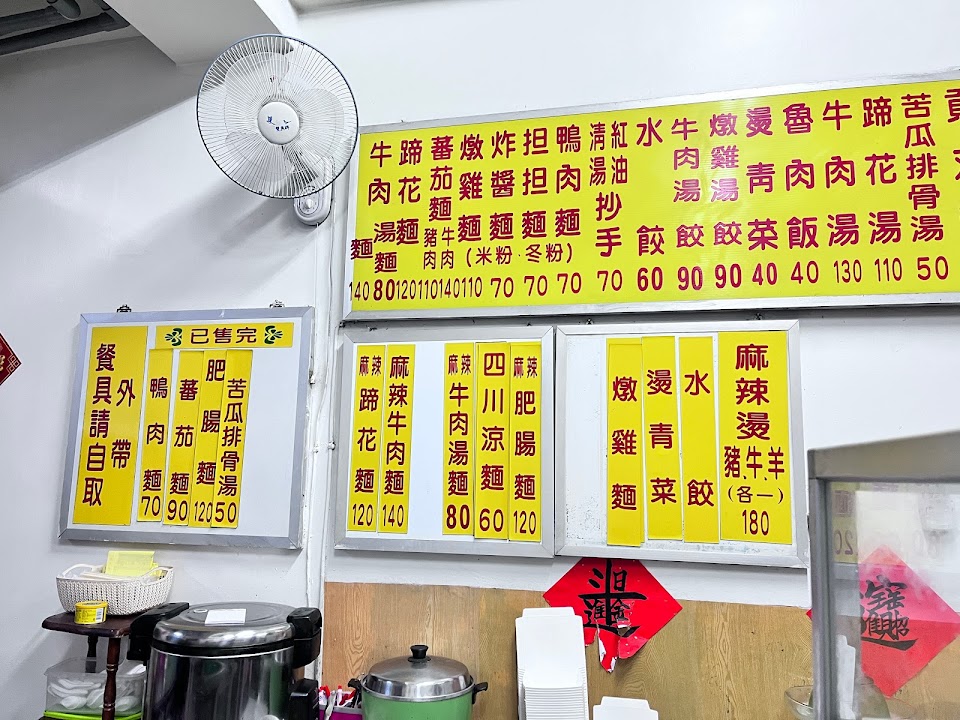 牛肉麵 140
牛肉湯麵 80
蹄花麵 120
蕃茄麵 豬肉 110 牛肉 140
燉雞麵 110
炸醬麵 70
担担麵 70
鴨肉麵 70
(米粉·冬粉)
清湯 紅油 抄手 70
水餃 60
牛肉湯餃 90
燉雞湯餃 90
燙青菜 40
魯肉飯 40
牛肉湯 130
蹄花湯 110
苦瓜排骨湯 50
貢
已售完
餐具請自取
外帶
鴨肉麵 70
蕃茄麵 90
肥腸麵 120
苦瓜排骨湯 50
麻辣蹄花麵 120
麻辣牛肉麵 140
麻辣牛肉湯麵 80
四川涼麵 60
麻辣肥腸麵 120
燉雞麵
燙青菜
水餃
麻辣燙
豬、牛、羊
(各一)
180